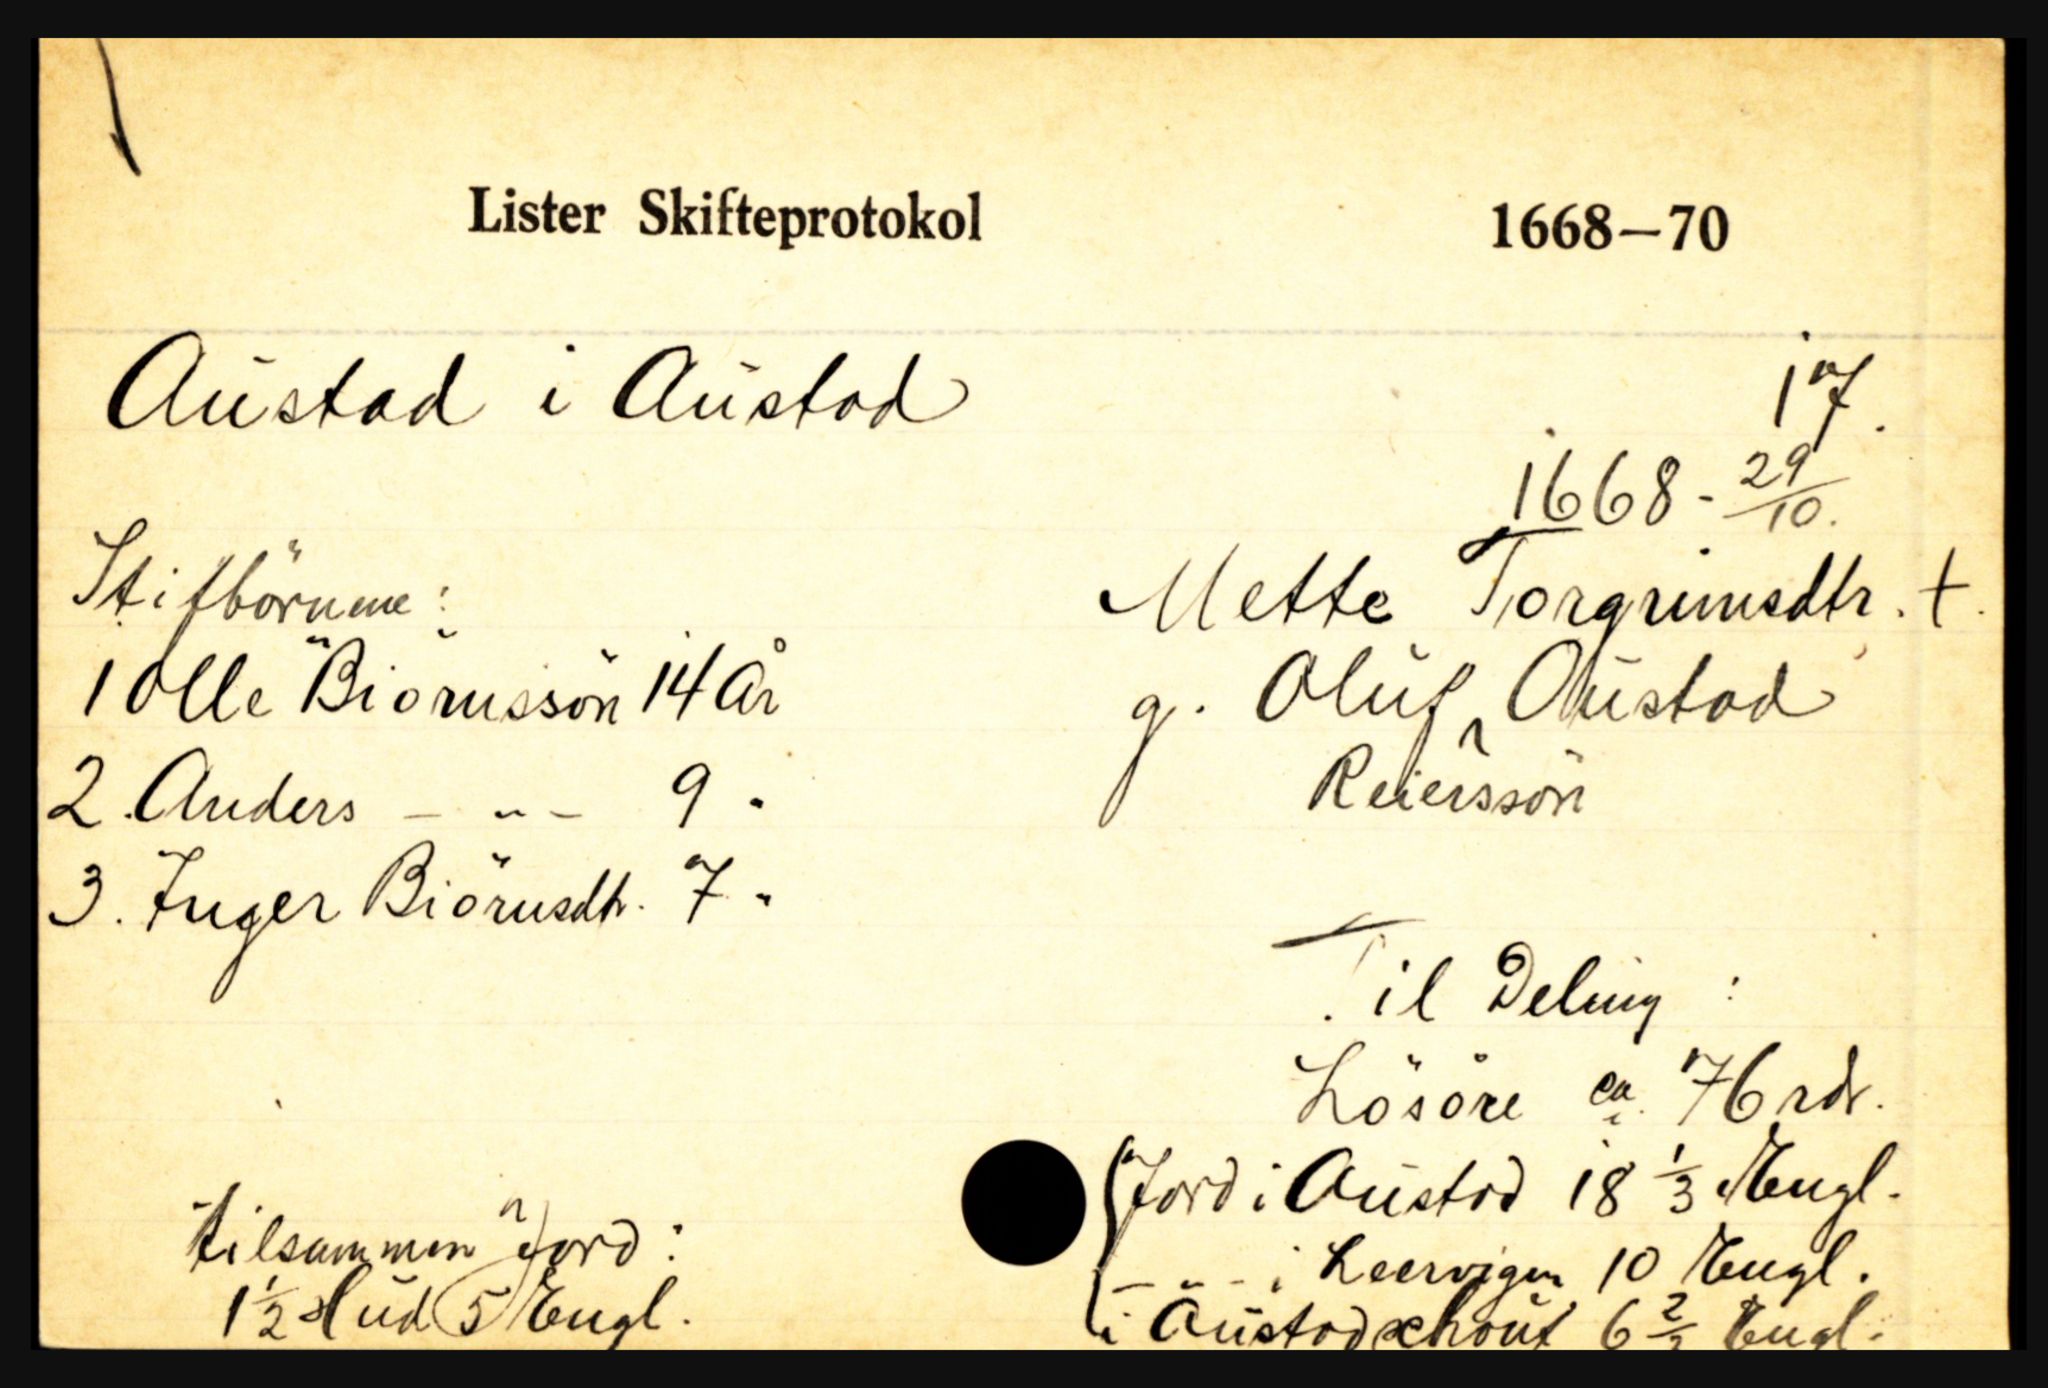 Lister Skifteprotokol 1668—70
Austad i Austad 17.
1668 - 29/10.
Stifbörnene:
Mette Torgrimsdtr. +.
1 Olle Biörnssön 14 År
g. Oluf Austad
Reierssön
2. Anders — " — 9 "
3. Inger Biörnsdtr. 7 "
Til Deling:
Lösöre ca. 76 rdr.
Jord i Austad 18 1/3 Engl.
— " — i Leervigen 10 Engl.
i Austad 6 2/3 Engl.
tilsammen Jord:
1 1/2 Hud 5 Engl.